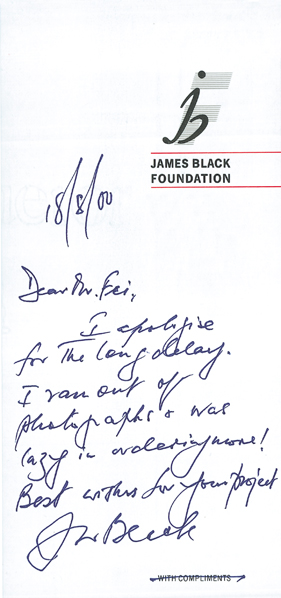 JAMES BLACK
FOUNDATION
18/8/00
Dear Mr. Fei,
I apologise
for the long delay.
I ran out of
photographs & was
lazy in ordering more!
Best wishes for your project
WITH COMPLIMENTS